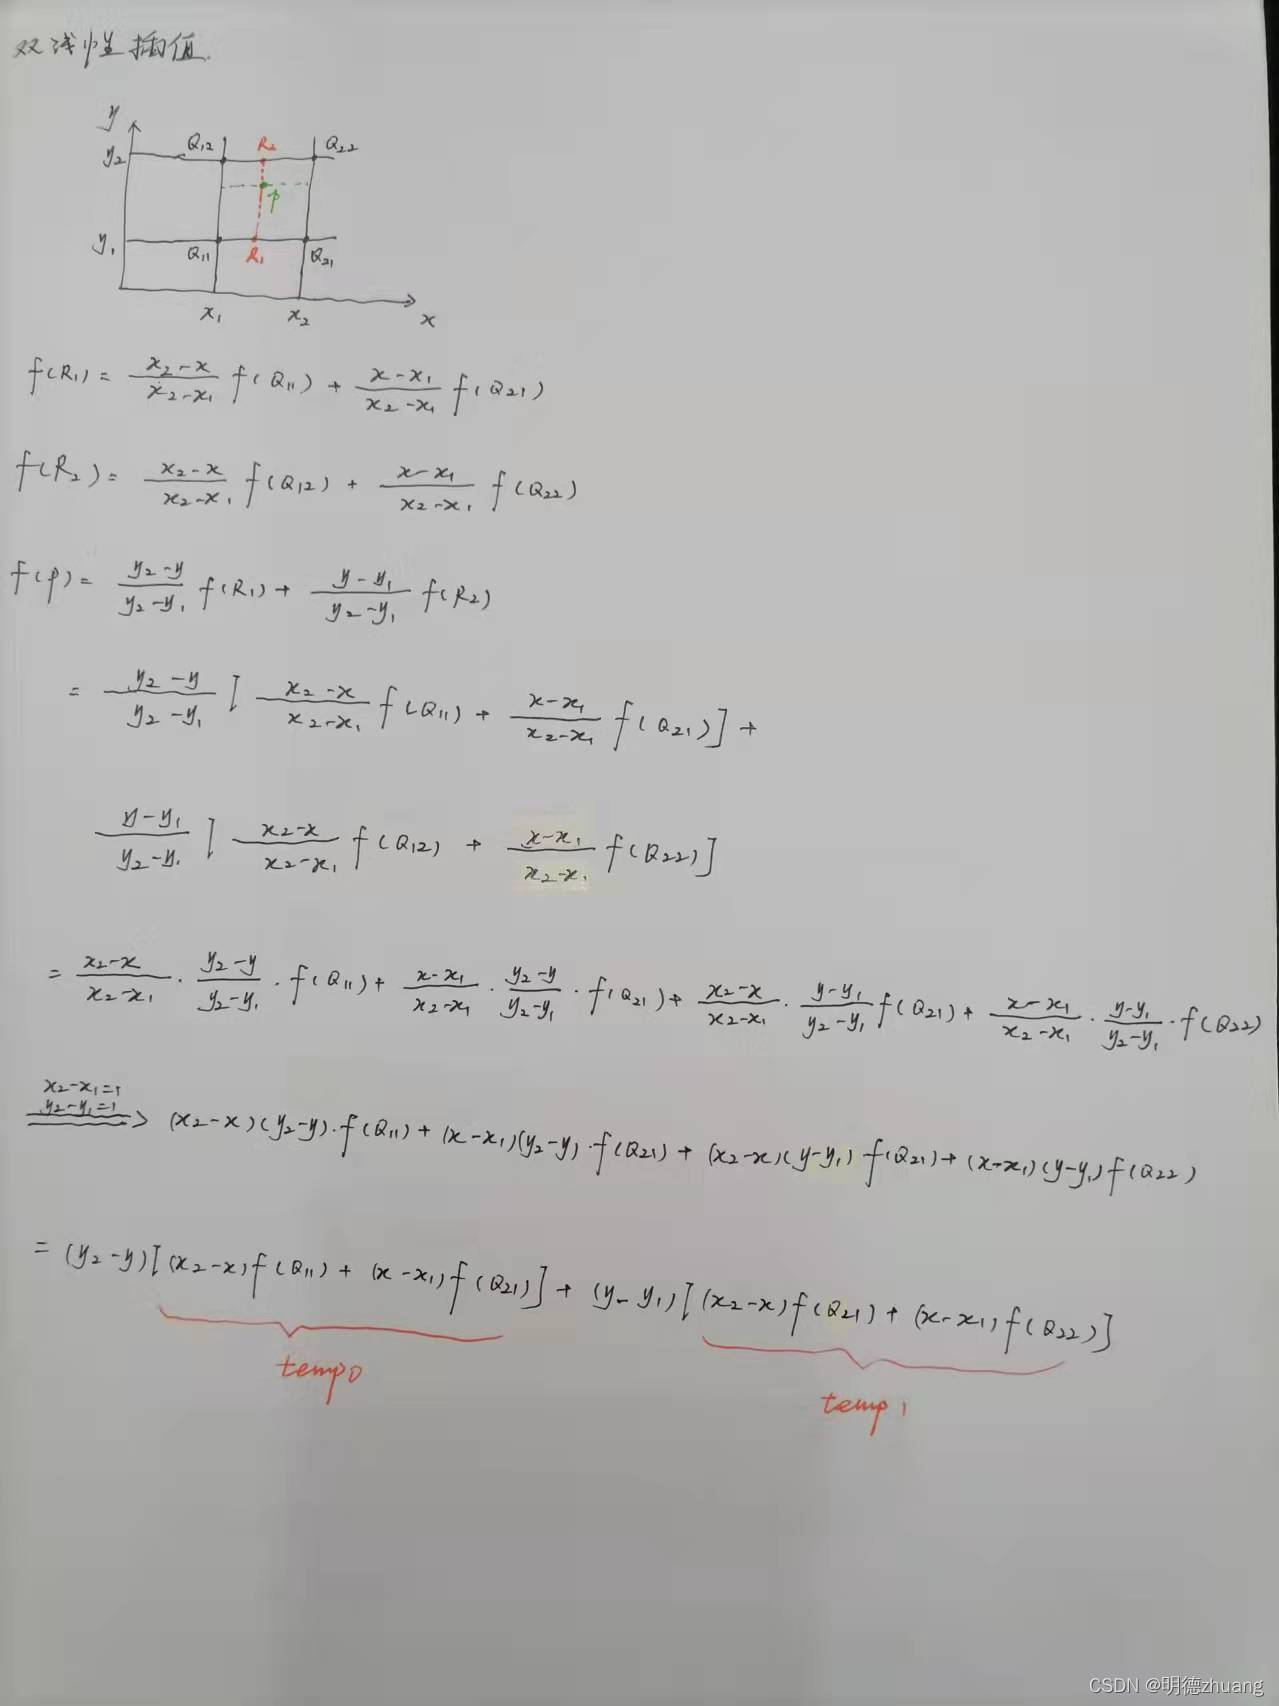 双线性插值.
y
y₂ Q₁₂ R₂ Q₂₂
p
y₁ Q₁₁ R₁ Q₂₁
x₁ x₂ x
f(R₁) = \frac{x₂-x}{x₂-x₁} f(Q₁₁) + \frac{x-x₁}{x₂-x₁} f(Q₂₁)
f(R₂) = \frac{x₂-x}{x₂-x₁} f(Q₁₂) + \frac{x-x₁}{x₂-x₁} f(Q₂₂)
f(p) = \frac{y₂-y}{y₂-y₁} f(R₁) + \frac{y-y₁}{y₂-y₁} f(R₂)
= \frac{y₂-y}{y₂-y₁} [ \frac{x₂-x}{x₂-x₁} f(Q₁₁) + \frac{x-x₁}{x₂-x₁} f(Q₂₁) ] +
\frac{y-y₁}{y₂-y₁} [ \frac{x₂-x}{x₂-x₁} f(Q₁₂) + \frac{x-x₁}{x₂-x₁} f(Q₂₂) ]
= \frac{x₂-x}{x₂-x₁} · \frac{y₂-y}{y₂-y₁} · f(Q₁₁) + \frac{x-x₁}{x₂-x₁} · \frac{y₂-y}{y₂-y₁} · f(Q₂₁) + \frac{x₂-x}{x₂-x₁} · \frac{y-y₁}{y₂-y₁} f(Q₂₁) + \frac{x-x₁}{x₂-x₁} · \frac{y-y₁}{y₂-y₁} · f(Q₂₂)
x₂-x₁=1
y₂-y₁=1
(x₂-x)(y₂-y)·f(Q₁₁) + (x-x₁)(y₂-y)·f(Q₂₁) + (x₂-x)(y-y₁) f(Q₂₁) + (x-x₁)(y-y₁) f(Q₂₂)
= (y₂-y)[(x₂-x)f(Q₁₁) + (x-x₁)f(Q₂₁)] + (y-y₁)[(x₂-x)f(Q₂₁) + (x-x₁)f(Q₂₂)]
temp0
temp1
CSDN @明德zhuang